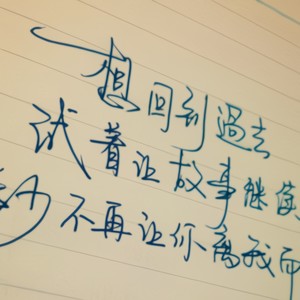 想回到过去
试着让故事继续
不再让你离我而